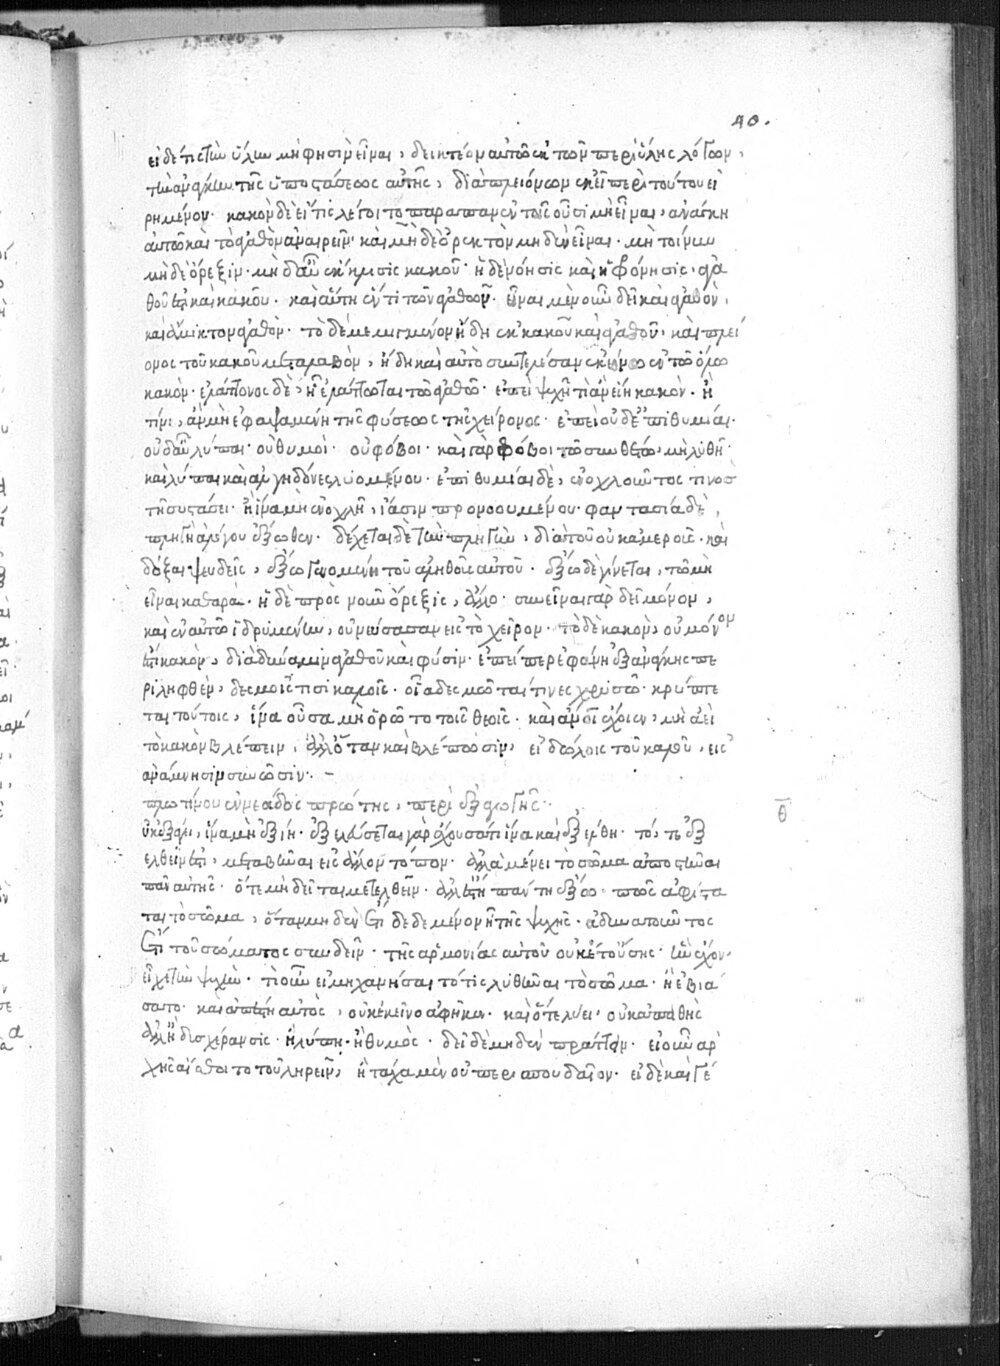 40.
εἰ δέ τις τὴν ὕλην μή φησιν εἶναι, δεικτέον αὐτῶ ἐκ τῶν περὶ ὕλης λόγων,
τὴν ἀνάγκην τῆς ὑποστάσεως αὐτῆς, διὰ πλειόνων ἐκεῖ περὶ τούτου εἰ
ρημένον. κακὸν δὲ εἴ τις λέγοι τὸ παράπαν ἐν τοῖς οὖσι μὴ εἶναι, ἀνάγκη
αὐτῶ καὶ τὸ ἀγαθὸν ἀναιρεῖν· καὶ μηδὲ ὀρεκτὸν μηδὲν εἶναι. μὴ τοίνυν
μηδὲ ὄρεξιν. μὴ δ' αὖ ἔκκλισις κακοῦ. ἡ δὲ νόησις καὶ ἡ φρόνησις, ἀγα
θοῦ ἐστι καὶ κακοῦ. καὶ αὕτη ἕν τι τῶν ἀγαθῶν. εἶναι μὲν οὖν δεῖ καὶ ἀγαθὸν,
καὶ ἄμικτον ἀγαθόν. τὸ δὲ μεμιγμένον ἤδη ἐκ κακοῦ καὶ ἀγαθοῦ, καὶ πλεί
ονος τοῦ κακοῦ μεταλαβὸν, ἤδη καὶ αὐτὸ συντελέσαν ἐκείνω ἐν τῶ ὅλω
κακόν. ἐλάττονος δὲ, ἧ ἠλάττωται τῶ ἀγαθῶ. ἐπεὶ ψυχῆ τί ἂν εἴη κακόν. ἢ
τίνι, ἂν μὴ ἐφαψαμένη τῆς φύσεως τῆς χείρονος. ἐπεὶ οὐδὲ ἐπιθυμίαι.
οὐδ' αὖ λῦπαι. οὐ θυμοί. οὐ φόβοι. καὶ γὰρ φόβοι τῶ συνθέτω, μὴ λυθῆ.
καὶ λῦπαι καὶ ἀλγηδόνες λυομένου. ἐπιθυμίαι δὲ, ἐνοχλοῦντος τινὸς
τῆ συστάσει. ἢ ἵνα μὴ ἐνοχλῆ, ἴασιν προνοουμένου. φαντασία δὲ,
πληγὴ ἀλόγου ἔξωθεν. δέχεται δὲ τὴν πληγὴν, διὰ τοῦ οὐκ ἀμεροῦς. καὶ
δόξαι ψευδεῖς, ἔξω γενομένη τοῦ ἀληθοῦς αὐτοῦ. ἔξω δὲ γίνεται, τῶ μὴ
εἶναι καθαρά. ἡ δὲ πρὸς νοῦν ὄρεξις, ἄλλο. συνεῖναι γὰρ δεῖ μόνον,
καὶ ἐν αὐτῶ ἱδρυμένην, οὐ νεύσασαν εἰς τὸ χεῖρον. τὸ δὲ κακὸν, οὐ μόνον
ἐστι κακὸν, διὰ δύναμιν ἀγαθοῦ καὶ φύσιν. ἐπείπερ ἐφάνη ἐξ ἀνάγκης πε
ριληφθὲν, δεσμοῖς τισὶ καλοῖς. οἷα δεσμῶταί τινες χρυσῶ. κρύπτε
ται τούτοις, ἵνα οὖσα μὴ ὁρῶτο τοῖς θεοῖς. καὶ ἄνθρωποι ἔχοιεν, μὴ ἀεὶ
τὸ κακὸν βλέπειν, ἀλλ' ὅταν καὶ βλέπωσιν, εἰδώλοις τοῦ καλοῦ, εἰς
ἀνάμνησιν συνῶσιν. –
πλωτίνου ἐννεάδος πρώτης, περὶ ἐξαγωγῆς.
θ
οὐκ ἐξάξει, ἵνα μὴ ἐξίη. ἐξελεύσεται γὰρ ἔχουσά τι ἵνα καὶ ἐξέλθη. τό, τε ἐξ
ελθεῖν ἐστι, μεταβῆναι εἰς ἄλλον τόπον. ἀλλὰ μένει τὸ σῶμα ἀποστῆναι
πᾶν αὐτῆς. ὅτε μὴ δεῖται μετελθεῖν. ἀλλ' ἔστι πάντη ἔξω. πῶς ἀφίστα
ται τὸ σῶμα, ὅταν μηδὲν ἔτι δεδεμένον ἦ τῆς ψυχῆς. ἀδυνατοῦντος
ἔτι τοῦ σώματος συνδεῖν. τῆς ἁρμονίας αὐτοῦ οὐκέτ' οὔσης. ἣν ἔχον,
εἶχε τὴν ψυχήν. τί οὖν εἰ μηχανήσαιτό τις λυθῆναι τὸ σῶμα. ἢ ἐβιά
σατο. καὶ ἀπέστη αὐτὸς, οὐκ ἐκεῖνο ἀφῆκεν. καὶ ὅτε λύει, οὐκ ἀπαθὴς
ἀλλ' ἢ δυσχέρανσις. ἢ λύπη. ἢ θυμός. δεῖ δὲ μηδὲν πράττειν. εἰ οὖν ἄρ
χης αἴσθοιτο τοῦ ληρεῖν, ἢ τάχα μὲν οὐ περὶ σπουδαῖον. εἰ δὲ καὶ γέ